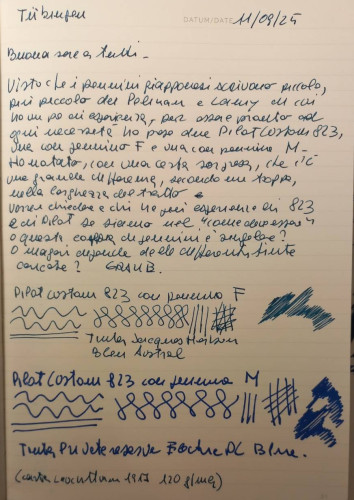 Tübingen
DATUM/DATE 11/09/25
Buona sera a tutti.
Visto che i pennini giapponesi scrivono piccolo,
più piccolo dei Pelikan e Lamy di cui
ho un po' di esperienza, per essere pronto ad
ogni necessità ho preso due Pilot Custom 823,
una con pennino F e una con pennino M.
Ho notato, con una certa sorpresa, che c'è
una grande differenza, secondo me troppa,
nella larghezza del tratto e
vorrei chiedere a chi ha più esperienza di 823
e di Pilot se siamo nel "come dev'essere"
o questa coppia di pennini è singolare?
O magari dipende dalle differenti tinte
caricate? Grazie
Pilot Custom 823 con pennino F
Tinta Jacques Herbin
Bleu Austral
Pilot Custom 823 con pennino M
Tinta Private Reserve Electric DC Blue.
(carta Leuchtturm 1917 120 g/mq)